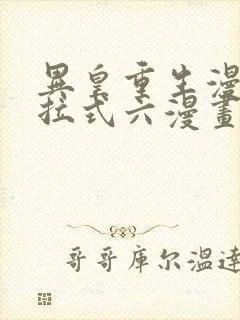 異皇重生漫
拉式六漫畫
哥哥庫尔溫達